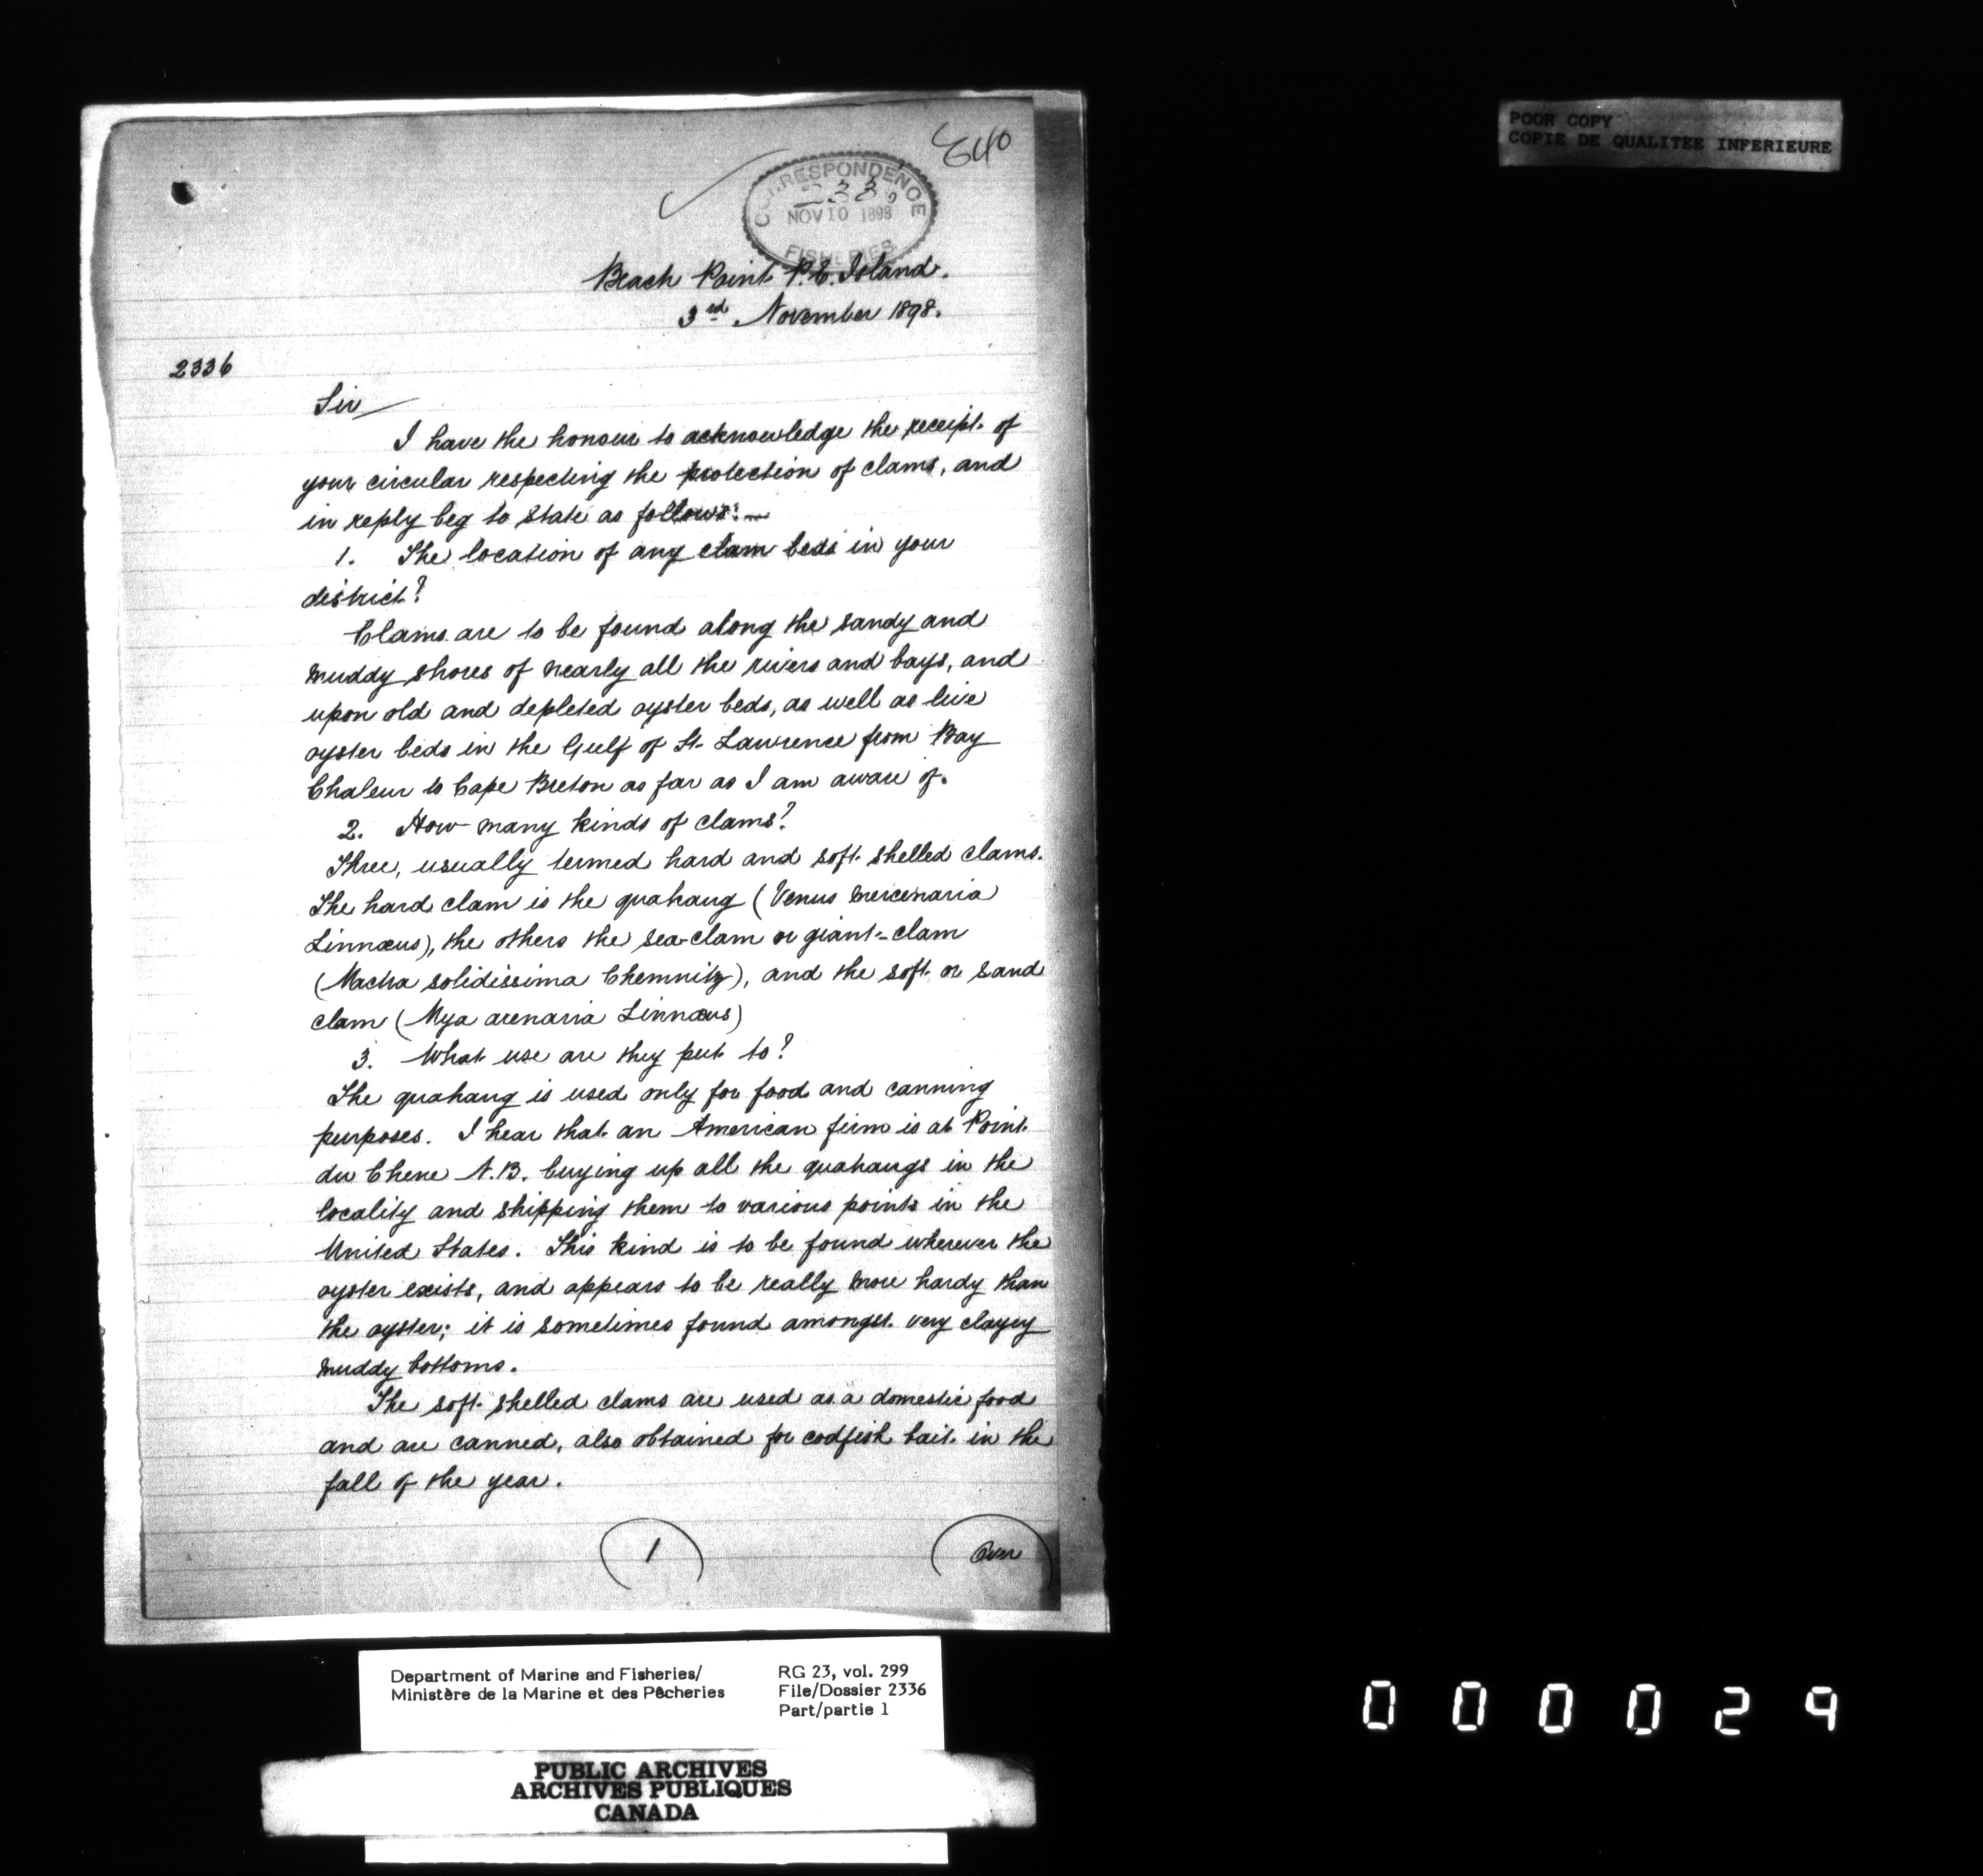 POOR COPY
COPIE DE QUALITEE INFERIEURE
CORRESPONDENCE
NOV 10 1898
FISHERIES
Beach Point P.E. Island.
3rd November 1898.
2336
Sir
I have the honour to acknowledge the receipt of
your circular respecting the protection of clams, and
in reply beg to state as follows:—
1. The location of any clam beds in your
district?
Clams are to be found along the sandy and
muddy shores of nearly all the rivers and bays, and
upon old and depleted oyster beds, as well as live
oyster beds in the Gulf of St. Lawrence from Bay
Chaleur to Cape Breton as far as I am aware of.
2. How many kinds of clams?
Three, usually termed hard and soft shelled clams.
The hard clam is the quahaug (Venus mercenaria
Linnæus), the others the sea-clam or giant-clam
(Mactra solidissima Chemnitz), and the soft or sand
clam (Mya arenaria Linnæus)
3. What use are they put to?
The quahaug is used only for food and canning
purposes. I hear that an American firm is at Point
du Chene N.B. buying up all the quahaugs in the
locality and shipping them to various points in the
United States. This kind is to be found wherever the
oyster exists, and appears to be really more hardy than
the oyster; it is sometimes found amongst very clayey
muddy bottoms.
The soft shelled clams are used as a domestic food
and are canned, also obtained for codfish bait in the
fall of the year.
1
Over
Department of Marine and Fisheries/
Ministère de la Marine et des Pêcheries
RG 23, vol. 299
File/Dossier 2336
Part/partie 1
PUBLIC ARCHIVES
ARCHIVES PUBLIQUES
CANADA
000029